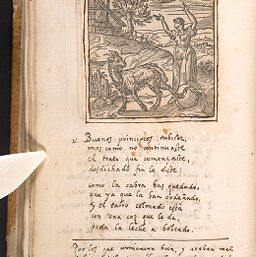 Buenos principios tubiste,
mas como no continuaste
el trato que començaste,
desdichado fin le diste:
como la cabra has quedado,
que ya que la han ordeñado,
y el tarro colmado está
con una coz que le da,
toda la leche a
Por los que comienzan bien, y acaban mal